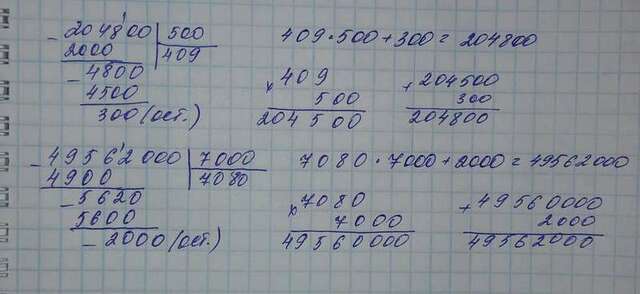 - 204800 | 500
2000 | 409
- 4800
4500
300 (ост.)
409 · 500 + 300 = 204800
× 409
500
204 500
+ 204500
300
204800
- 49562000 | 7000
4900 | 7080
- 5620
5600
- 2000 (ост.)
7080 · 7000 + 2000 = 49562000
× 7080
7000
49560000
+ 49560000
2000
49562000